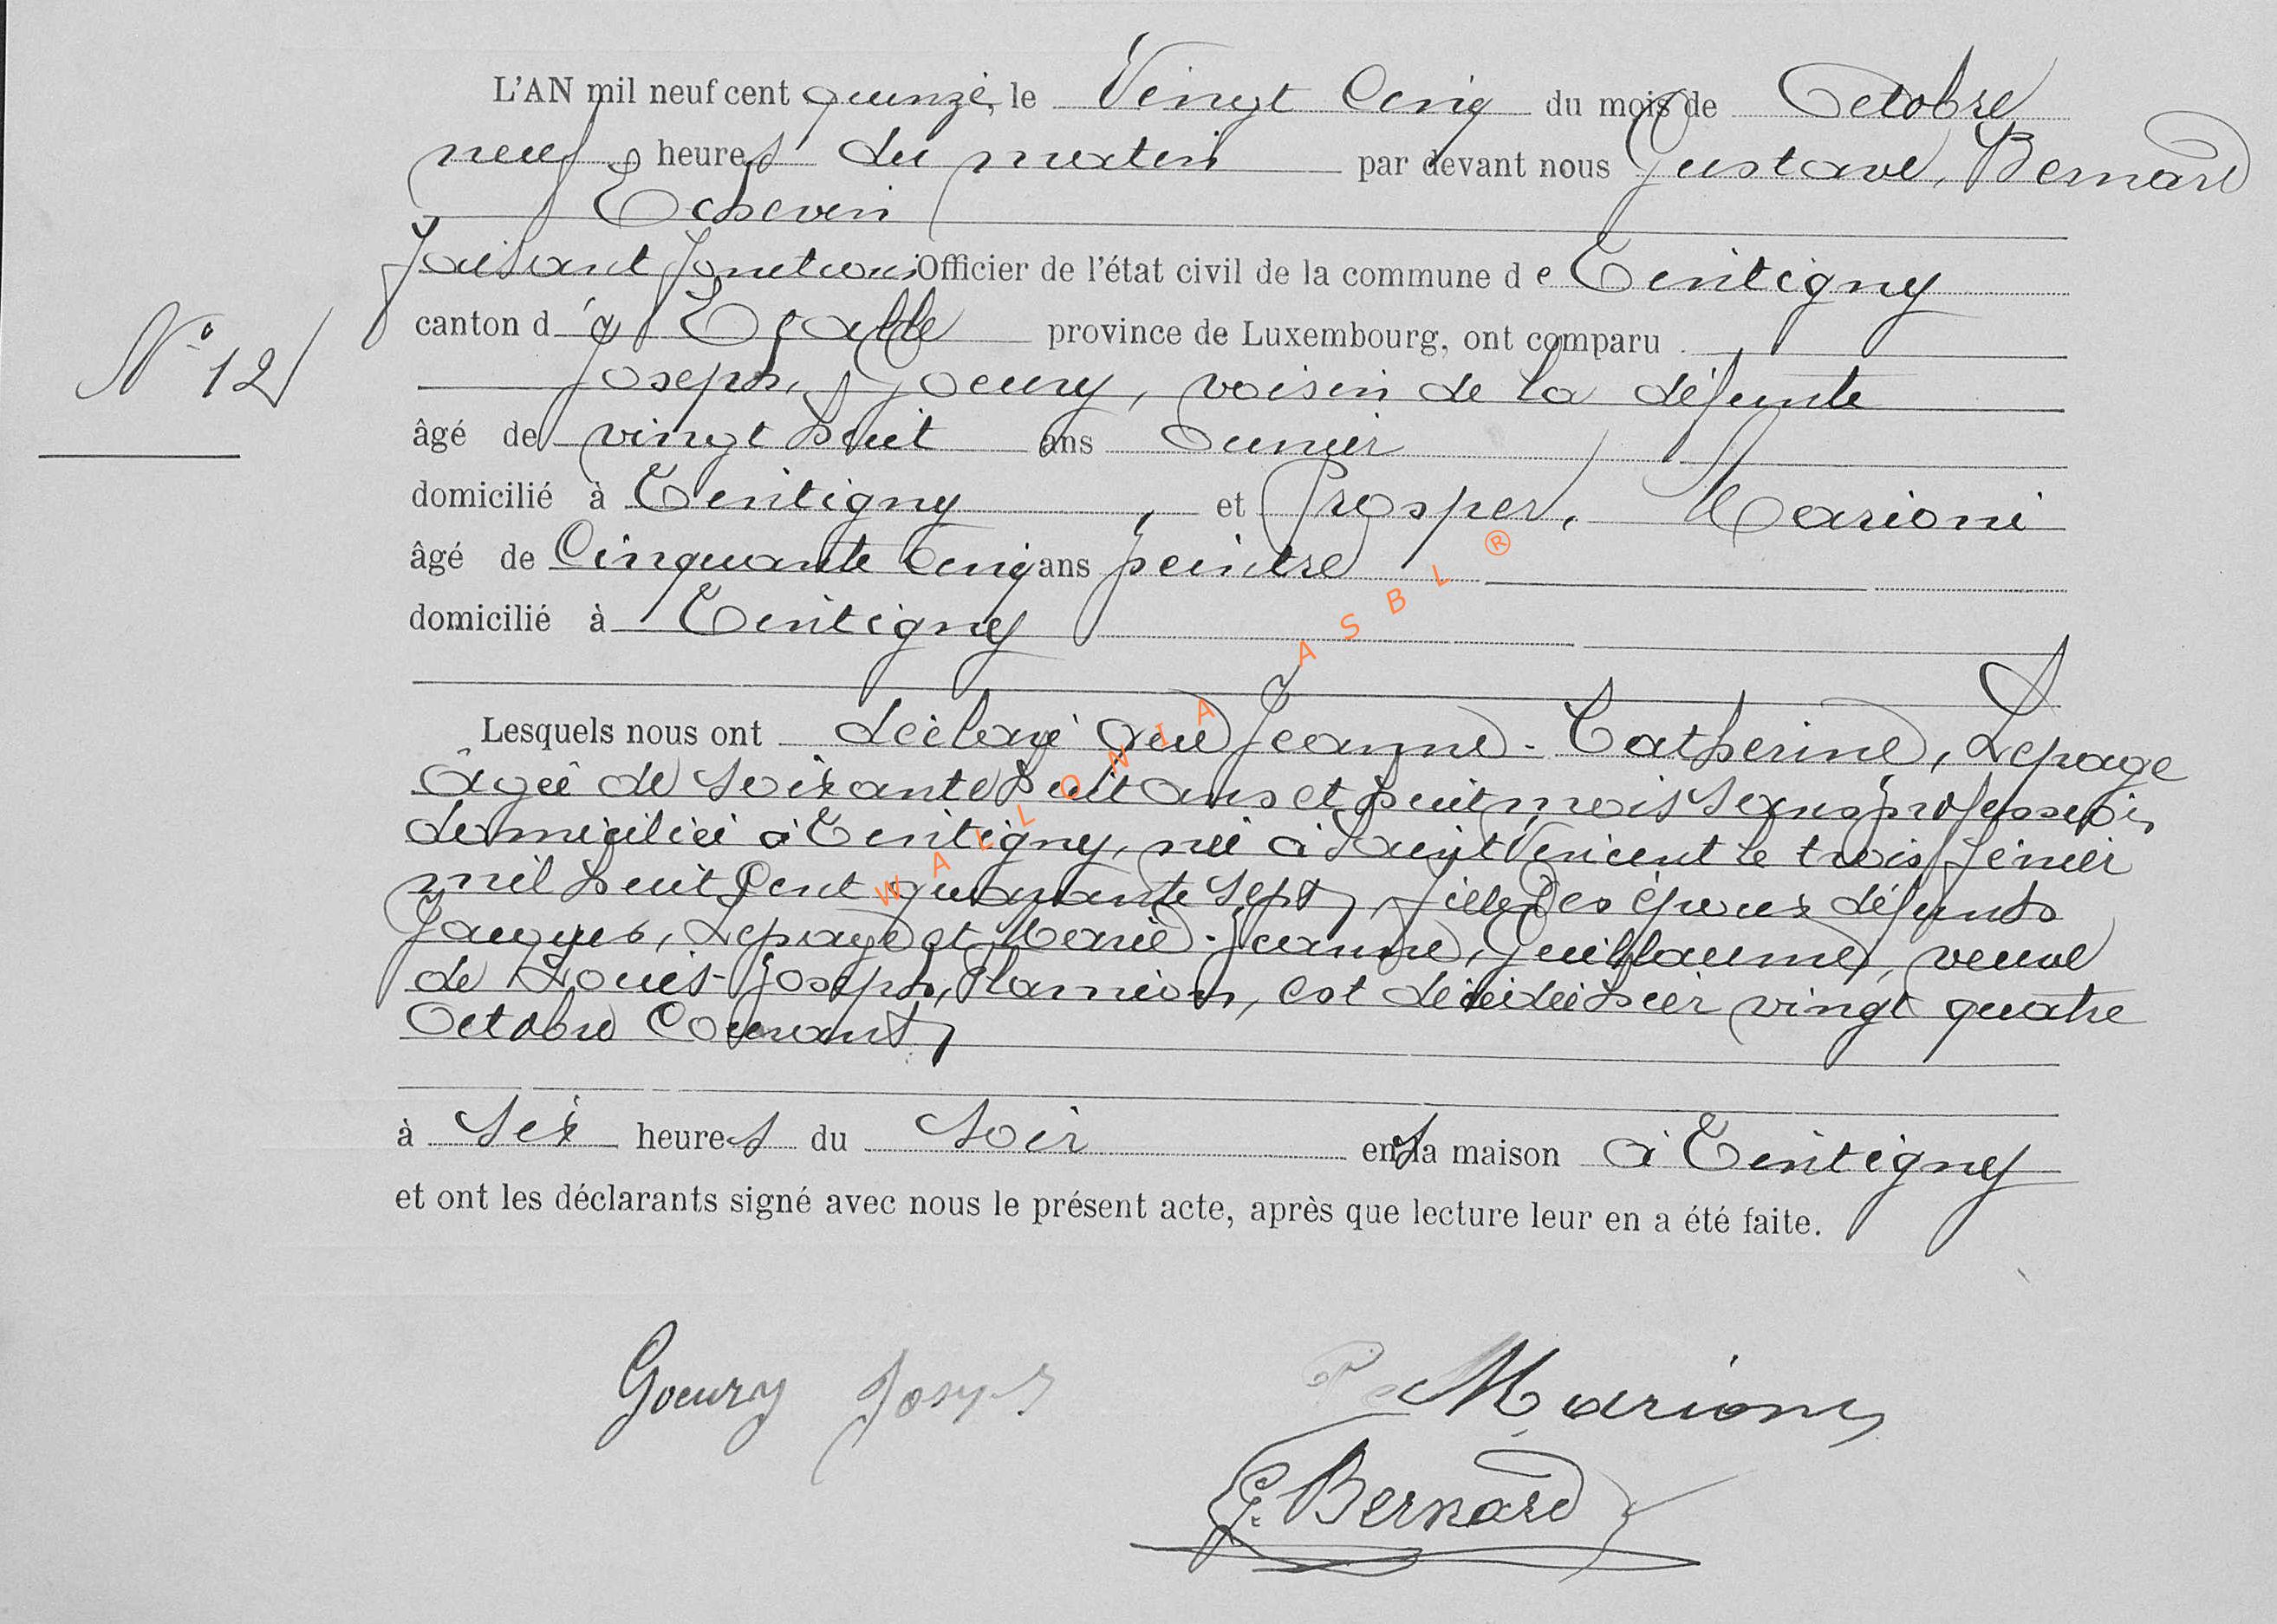 L'AN mil neuf cent quinze, le Vingt Cinq du mois de Octobre
neuf heures du matin par devant nous Gustave, Bernard
Echevin
faisant fonctions Officier de l'état civil de la commune de Tintigny
N° 12
canton d'Etalle province de Luxembourg, ont comparu
Joseph, Goeury, voisin de la défunte
âgé de vingt huit ans
domicilié à Tintigny, et Prosper, Marioni
âgé de Cinquante Cinq ans peintre
domicilié à Tintigny
Lesquels nous ont déclaré que Jeanne-Catherine, Lepage
âgée de soixante huit ans et huit mois sans profession,
domiciliée à Tintigny, née à Saint Vincent le trois février
mil huit Cent quarante sept, fille des époux défunts
Jacques, Lepage et Marie-Jeanne, Guillaume, veuve
de Louis-Joseph, Flamion, est décédée hier vingt quatre
Octobre Courant,
à six heures du soir en sa maison à Tintigny
et ont les déclarants signé avec nous le présent acte, après que lecture leur en a été faite.
Goeury Joseph
P Marioni
G. Bernard
WALLONIA ASBL ®